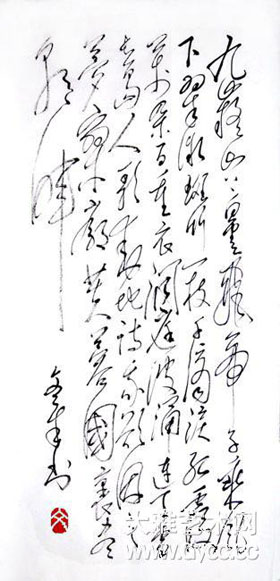 九嶷山上白云飞帝子乘风
下翠微斑竹一枝千滴泪红霞
万朵百重衣洞庭波涌连天雪
长岛人歌动地诗我欲因之
梦寥廓芙蓉国里尽
朝晖
文
大雅艺术网
www.dyycc.cc